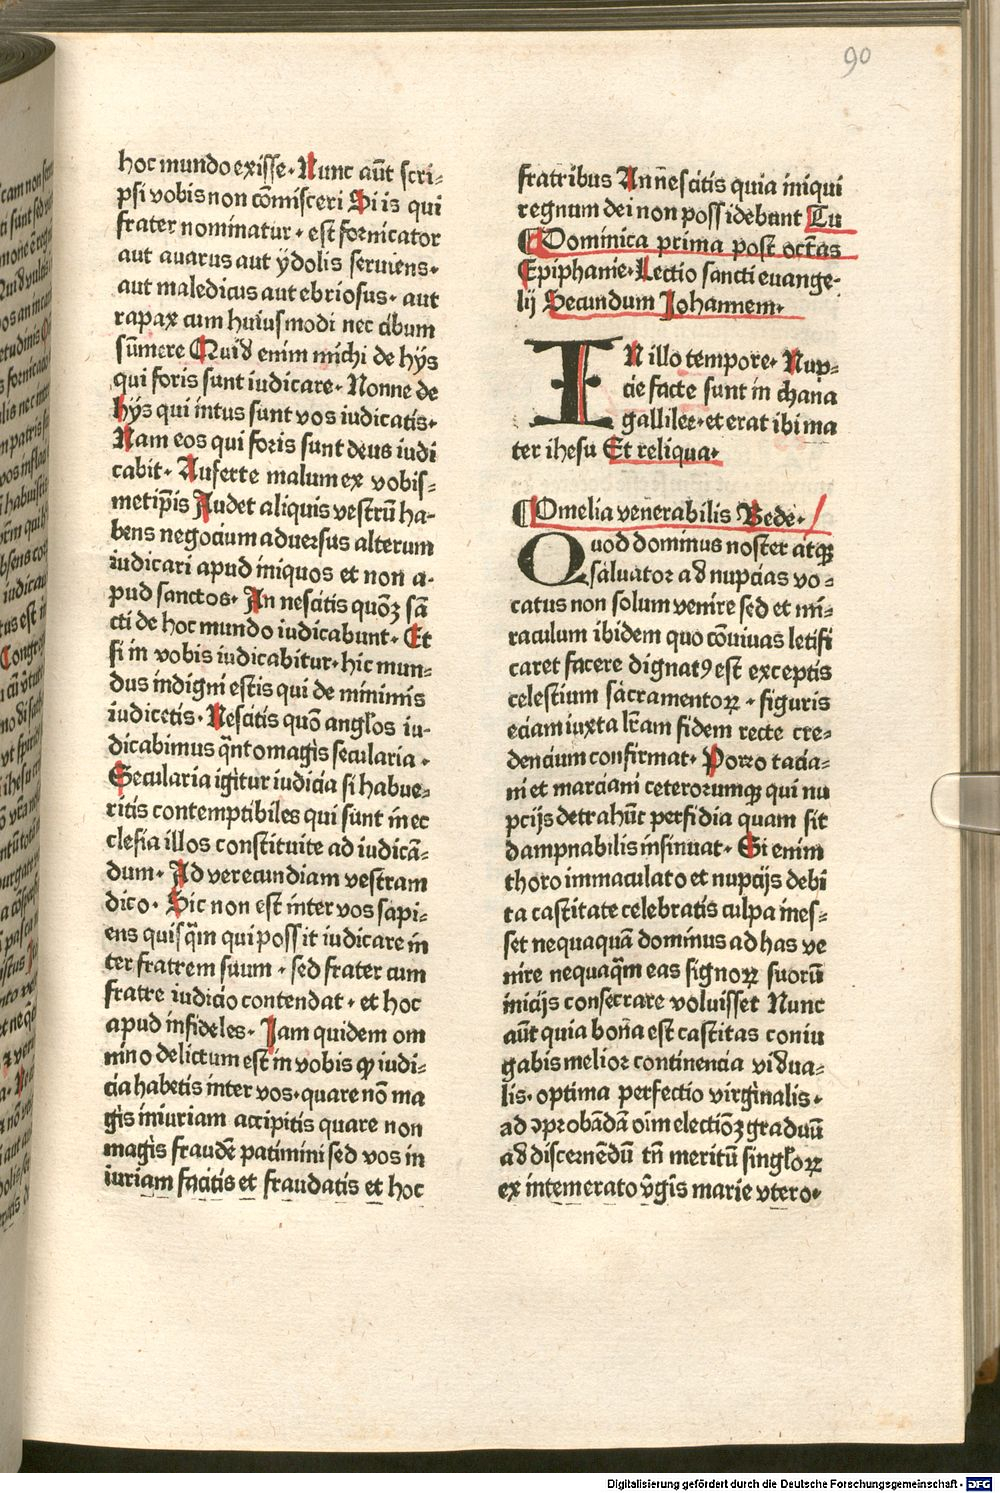 90
hoc mundo exisse. Nunc aut̄ scri-
psi vobis non cōmisceri Si is qui
frater nominatur. est fornicator
aut auarus aut ẏdolis seruiens.
aut maledicus aut ebriosus. aut
rapax cum huiusmodi nec cibum
sūmere Quid enim michi de hẏs
qui foris sunt iudicare. Nonne de
hẏs qui intus sunt vos iudicatis.
Nam eos qui foris sunt deus iudi
cabit. Auferte malum ex vobis-
metip̄is Audet aliquis vestrū ha-
bens negocium aduersus alterum
iudicari apud iniquos et non a-
pud sanctos. An nescitis quōꝫ sā
cti de hoc mundo iudicabunt. Et
si in vobis iudicabitur. hic mun-
dus indigni estis qui de minimis
iudicetis. Nescitis quō angl̄os iu-
dicabimus q̄ntomagis secularia.
Secularia igitur iudicia si habue-
ritis contemptibiles qui sunt in ec
clesia illos constituite ad iudicā-
dum. Ad verecundiam vestram
dico. Sic non est inter vos sapi-
ens quisq̄m qui possit iudicare in
ter fratrem suum. sed frater cum
fratre iudicio contendat. et hoc
apud infideles. Iam quidem om
nino delictum est in vobis ꝙ iudi-
cia habetis inter vos. quare nō ma
gis iniuriam accipitis quare non
magis fraudē patimini sed vos in
iuriam facitis et fraudatis et hoc
fratribus An nescitis quia iniqui
regnum dei non possidebunt Tu
¶ Dominica prima post octās
Epiphanie. Lectio sancti euange-
lij Secundum Johannem.
IN illo tempore. Nup-
cie facte sunt in chana
gallilee. et erat ibi ma
ter ihesu Et reliqua.
¶ Omelia venerabilis Bede.
Quod dominus noster atqꝫ
saluator ad nupcias vo-
catus non solum venire sed et mi-
raculum ibidem quo cōuiuas letifi
caret facere dignatꝰ est exceptis
celestium sacramentoꝝ. figuris
eciam iuxta lr̄am fidem recte cre-
dencium confirmat. Porro tacia-
ni et marciani ceterorumqꝫ qui nu
pcijs detrahūt perfidia quam sit
dampnabilis insinuat. Si enim
thoro immaculato et nupcijs debi
ta castitate celebratis culpa ines-
set nequaquā dominus ad has ve
nire nequaq̄m eas signoꝝ suorū
inicijs consecrare voluisset Nunc
aut̄ quia bona est castitas coniu
gabis melior continencia vidua-
lis. optima perfectio virginalis.
ad ꝯprobandam oīm electiōꝫ graduū
ad discernēdū tn̄ meritū singl̄oꝝ
ex intemerato v̄gis marie vtero.
Digitalisierung gefördert durch die Deutsche Forschungsgemeinschaft - DFG